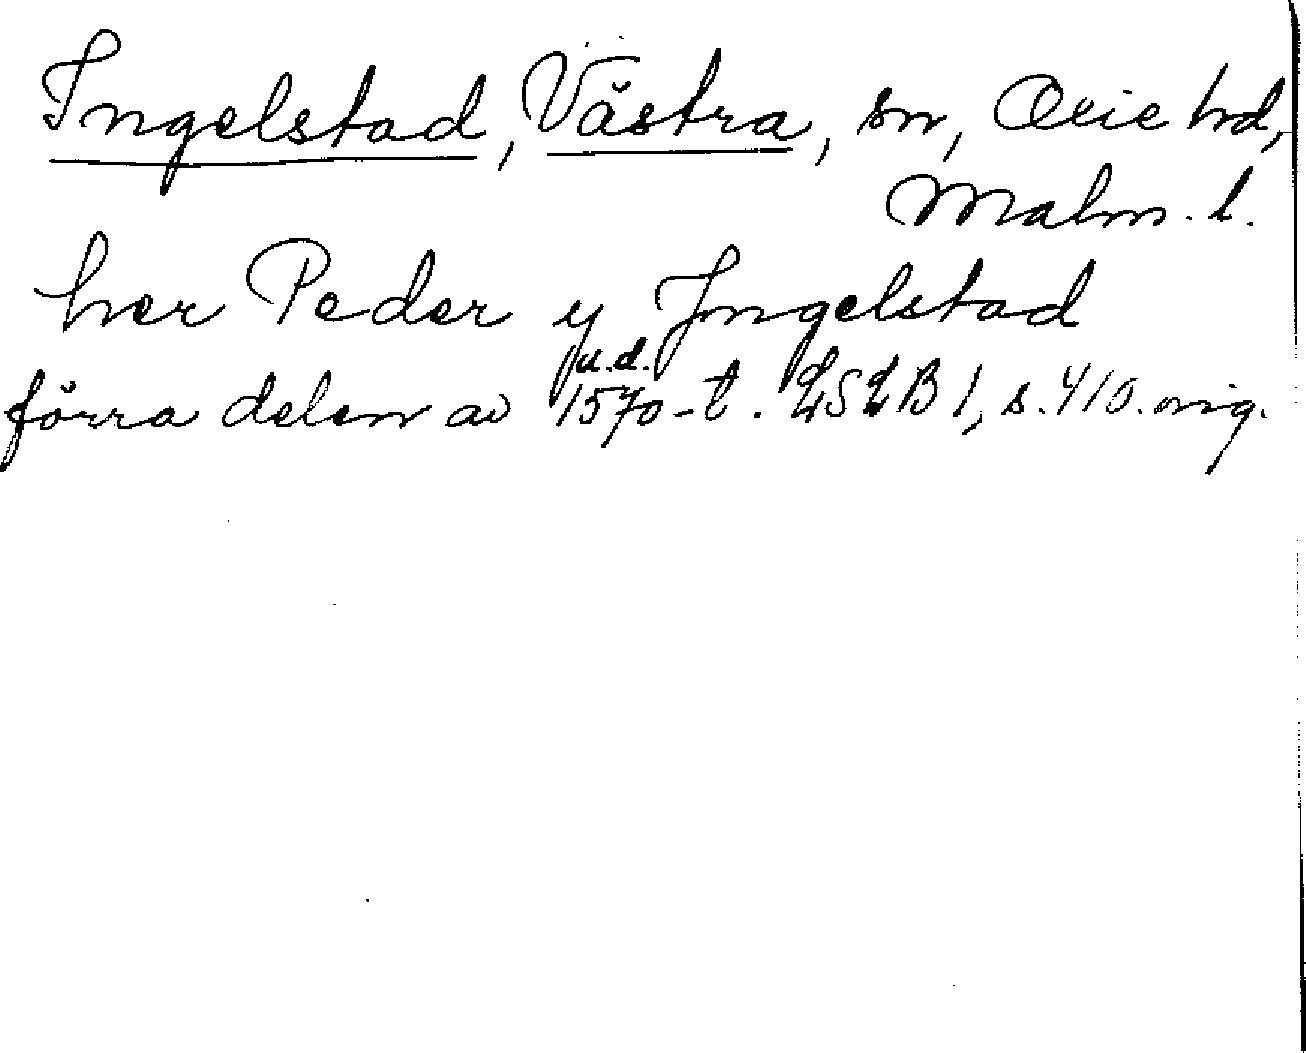 Ingelstad, Västra, sn, Oxie hd,
Malm. l.
her Peder y Ingelstad
u.d.
förra delen av 1570-t. LSLB 1, s. 410. orig.